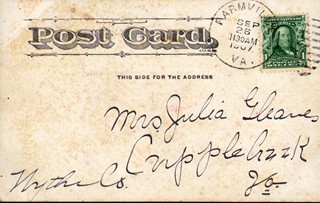 FARMVILLE
SEP
26
1130AM
1907
VA.
Post Card.
THIS SIDE FOR THE ADDRESS
Mrs Julia Gleaves
Cripple Creek
Wythe Co. Va.